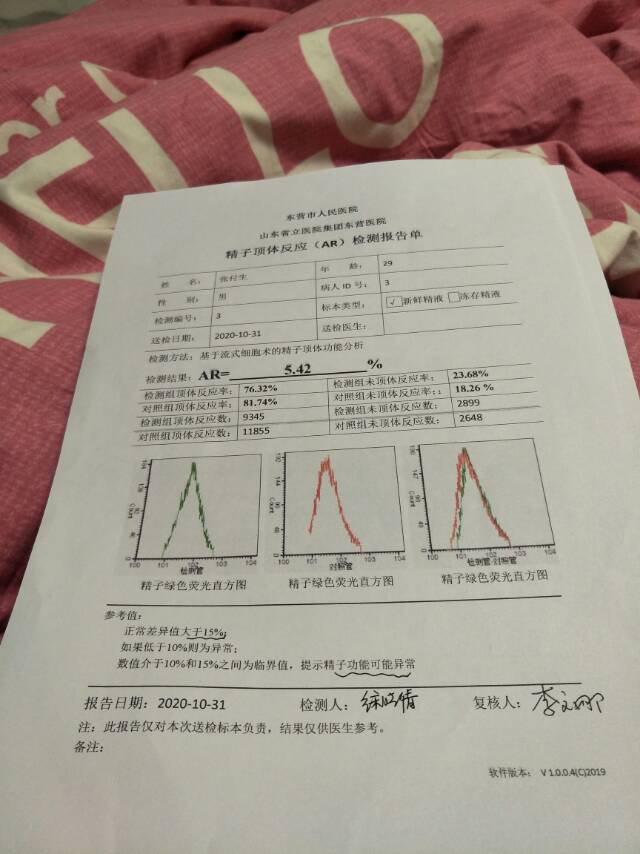 ELLO
东营市人民医院
山东省立医院集团东营医院
精子顶体反应（AR）检测报告单
姓 名： 张付生 年 龄： 29
性 别： 男 病人ID号： 3
检测编号： 3 标本类型： ✓新鲜精液 冻存精液
送检日期： 2020-10-31 送检医生：
检测方法：基于流式细胞术的精子顶体功能分析
检测结果：AR= 5.42 %
检测组顶体反应率： 76.32% 检测组未顶体反应率： 23.68%
对照组顶体反应率： 81.74% 对照组未顶体反应率：： 18.26 %
检测组顶体反应数： 9345 检测组未顶体反应数： 2899
对照组顶体反应数： 11855 对照组未顶体反应数： 2648
Count Count Count
100 101 102 103 104 100 101 102 103 104 100 101 102 103 104
检测管 对照管 检测管 对照管
精子绿色荧光直方图 精子绿色荧光直方图 精子绿色荧光直方图
参考值：
正常差异值大于15%;
如果低于10%则为异常；
数值介于10%和15%之间为临界值，提示精子功能可能异常
报告日期：2020-10-31 检测人： 复核人：
注：此报告仅对本次送检标本负责，结果仅供医生参考。
备注：
软件版本： V 1.0.0.4(C)2019